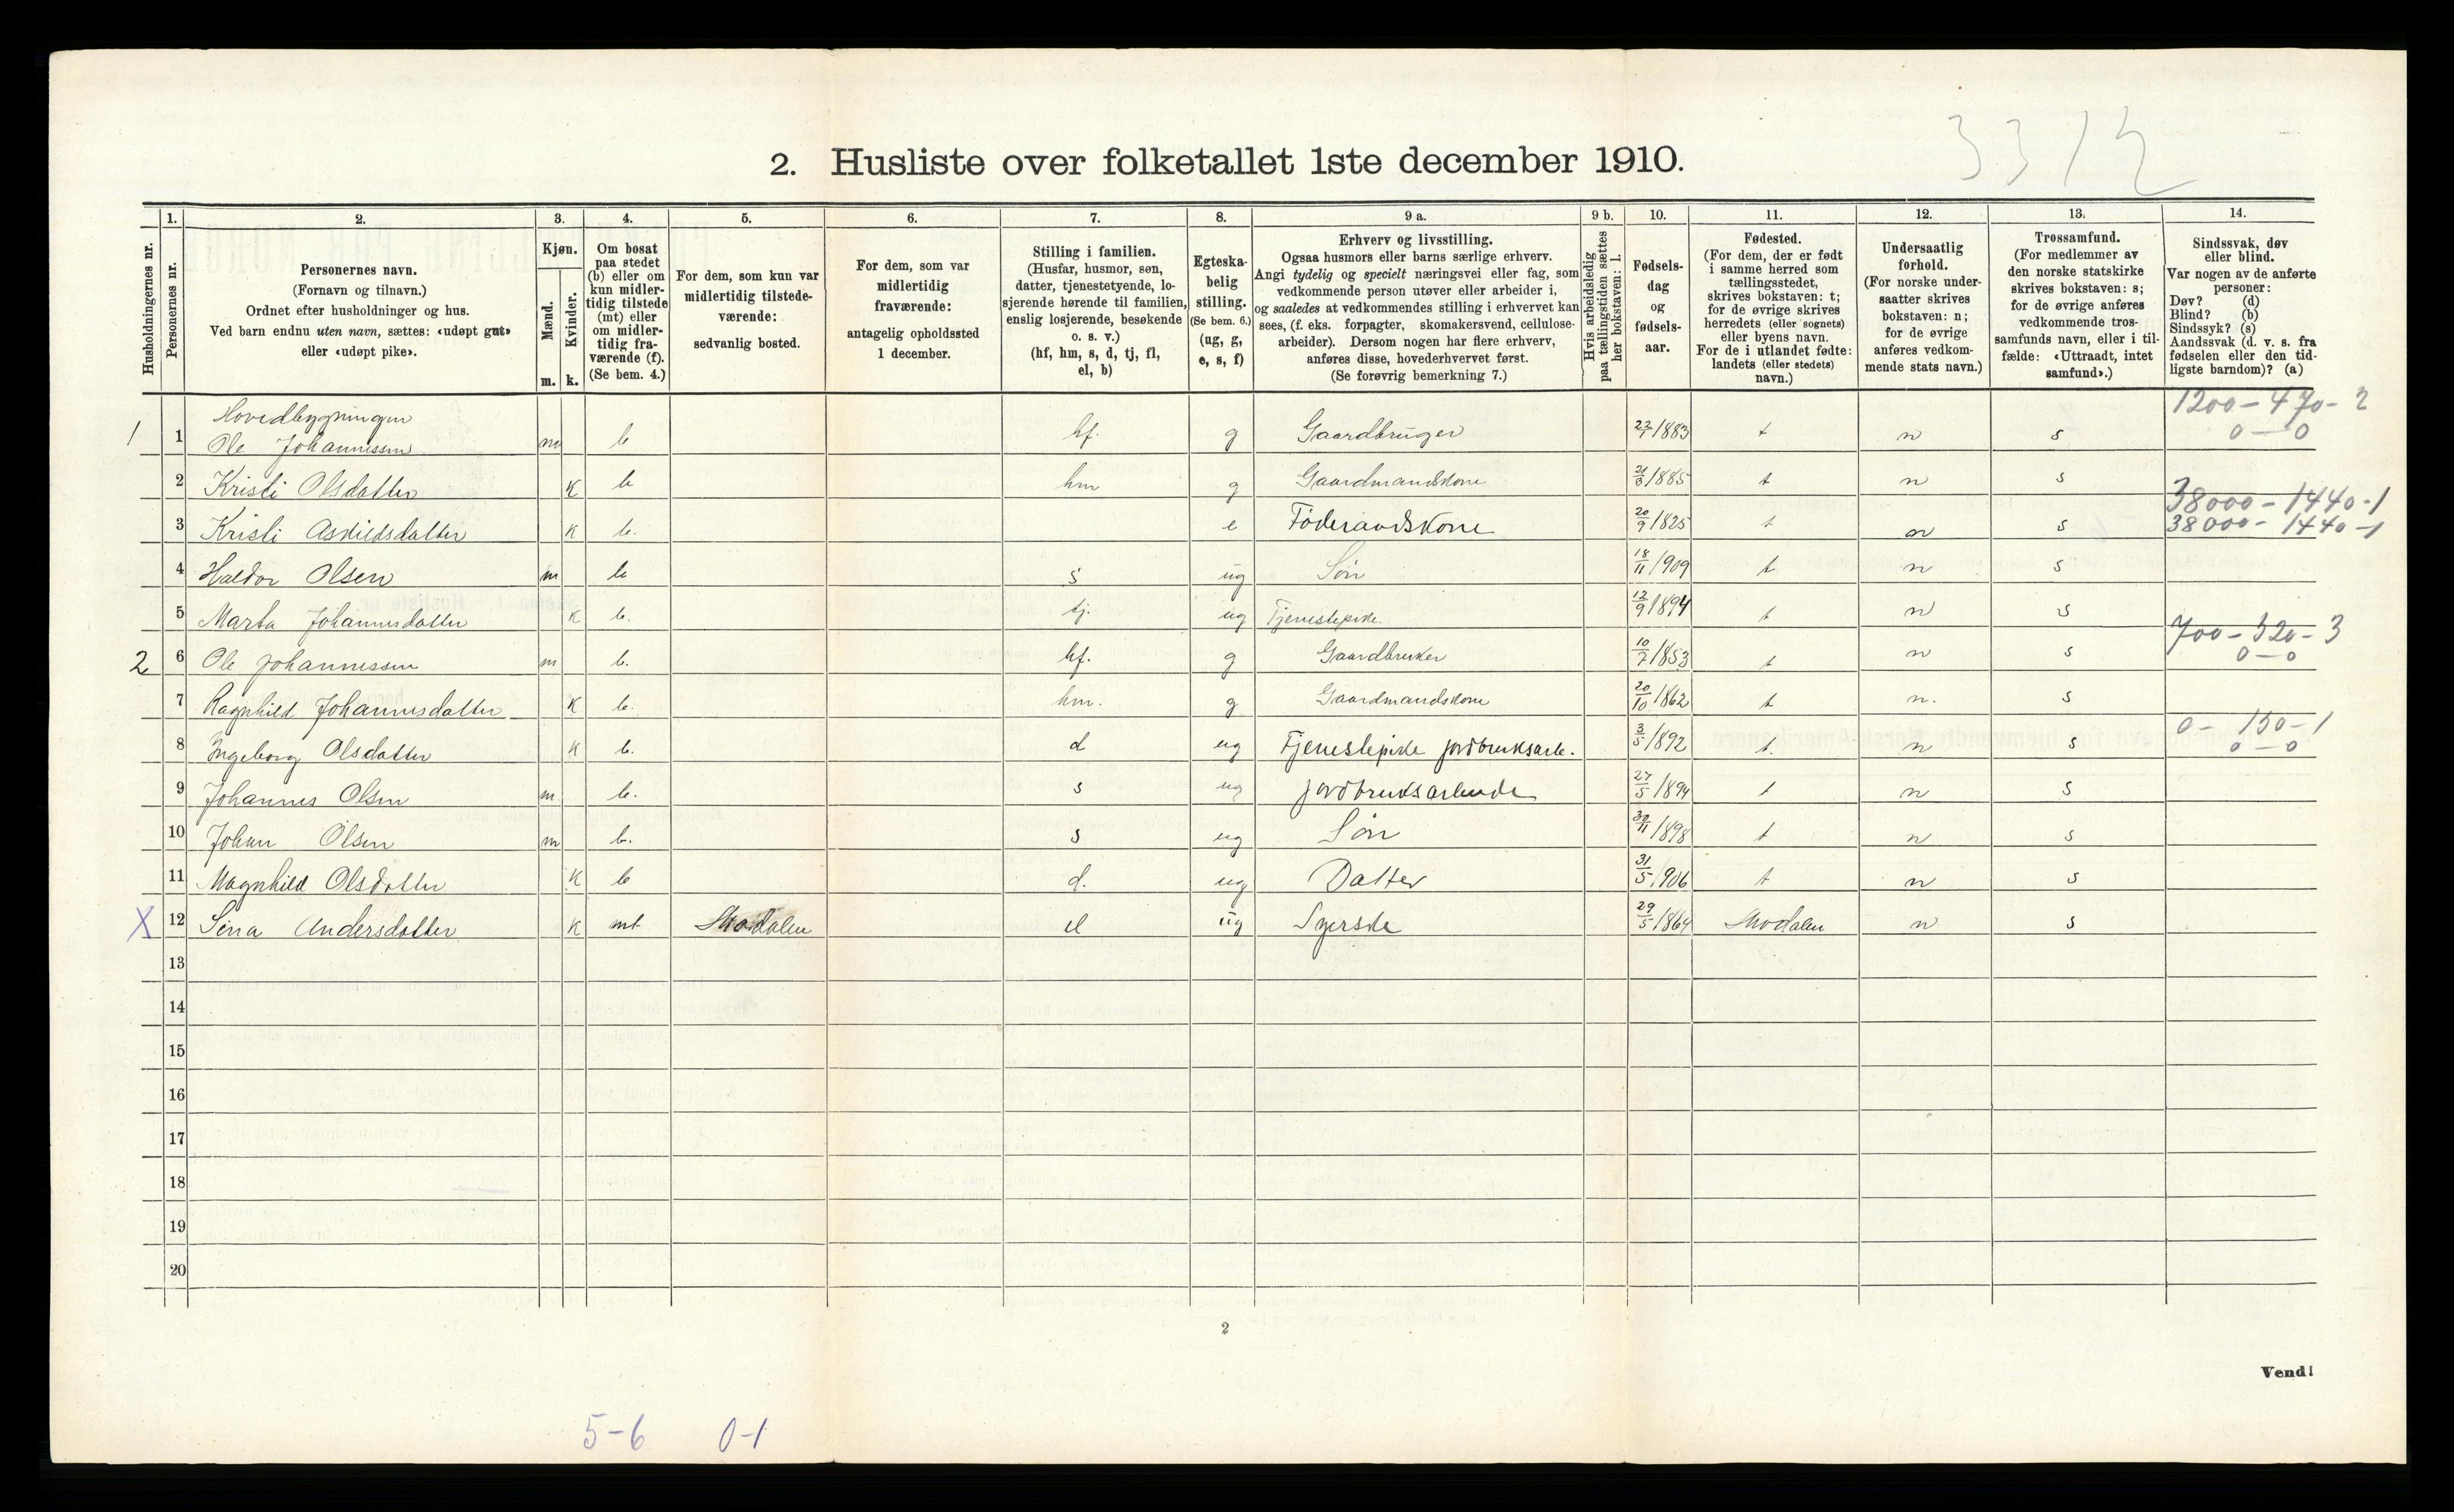 3312
2. Husliste over folketallet 1ste december 1910.
Husholdningernes nr.
1. Personernes nr.
2. Personernes navn. (Fornavn og tilnavn.) Ordnet efter husholdninger og hus. Ved barn endnu uten navn, sættes: «udøpt gut» eller «udøpt pike».
3. Kjøn. Mænd. m. Kvinder. k.
4. Om bosat paa stedet (b) eller om kun midler-tidig tilstede (mt) eller om midler-tidig fra-værende (f). (Se bem. 4.)
5. For dem, som kun var midlertidig tilstede-værende: sedvanlig bosted.
6. For dem, som var midlertidig fraværende: antagelig opholdssted 1 december.
7. Stilling i familien. (Husfar, husmor, søn, datter, tjenestetyende, lo-sjerende hørende til familien, enslig losjerende, besøkende o. s. v.) (hf, hm, s, d, tj, fl, el, b)
8. Egteska-belig stilling. (Se bem. 6.) (ug, g, e, s, f)
9 a. Erhverv og livsstilling. Ogsaa husmors eller barns særlige erhverv. Angi tydelig og specielt næringsvei eller fag, som vedkommende person utøver eller arbeider i, og saaledes at vedkommendes stilling i erhvervet kan sees, (f. eks. forpagter, skomakersvend, cellulose-arbeider). Dersom nogen har flere erhverv, anføres disse, hovederhvervet først. (Se forøvrig bemerkning 7.)
9 b. Hvis arbeidsledig paa tællingstiden sættes her bokstaven: l.
10. Fødsels-dag og fødsels-aar.
11. Fødested. (For dem, der er født i samme herred som tællingsstedet, skrives bokstaven: t; for de øvrige skrives herredets (eller sognets) eller byens navn. For de i utlandet fødte: landets (eller stedets) navn.)
12. Undersaatlig forhold. (For norske under-saatter skrives bokstaven: n; for de øvrige anføres vedkom-mende stats navn.)
13. Trossamfund. (For medlemmer av den norske statskirke skrives bokstaven: s; for de øvrige anføres vedkommende tros-samfunds navn, eller i til-fælde: «Uttraadt, intet samfund».)
14. Sindssvak, døv eller blind. Var nogen av de anførte personer: Døv? (d) Blind? (b) Sindssyk? (s) Aandssvak (d. v. s. fra fødselen eller den tid-ligste barndom)? (a)
Hovedbygningen 1200 - 470 - 2
1 1 Ole Johannessen m b hf. g Gaardbruger 22/1 1883 t n s 0 — 0
2 Kristi Olsdatter K b hm g Gaardmandskone 21/3 1885 t n s
38000 - 1440 - 1
3 Kristi Askildsdatter K b. e Føderaadskone 20/9 1825 t n s 38000 - 1440 - 1
4 Haldor Olsen m b s ug Søn 18/11 1909 t n s
5 Marta Johannesdatter K b. tj. ug Tjenestepike. 12/9 1894 t n s
700 - 320 - 3
2 6 Ole Johannessen m b. hf. g Gaardbruker 10/7 1853 t n s 0 — 0
7 Ragnhild Johannesdatter K b. hm. g Gaardmandskone 20/10 1862 t n. s
0 - 150 - 1
8 Ingeborg Olsdatter K b. d ug Tjenestepike jordbruksarb. 3/5 1892 t. n s 0 — 0
9 Johannes Olsen m b. s ug jordbruksarbeide 27/5 1894 t n s
10 Johan Olsen m b. s ug Søn 30/11 1898 t n s
11 Magnhild Olsdatter K b d. ug Datter 31/5 1906 t n s
X 12 Sina Andersdatter K mt Modalen el ug Syerske 29/5 1864 Modalen n s
13
14
15
16
17
18
19
20
2
Vend!
5-6 0-1